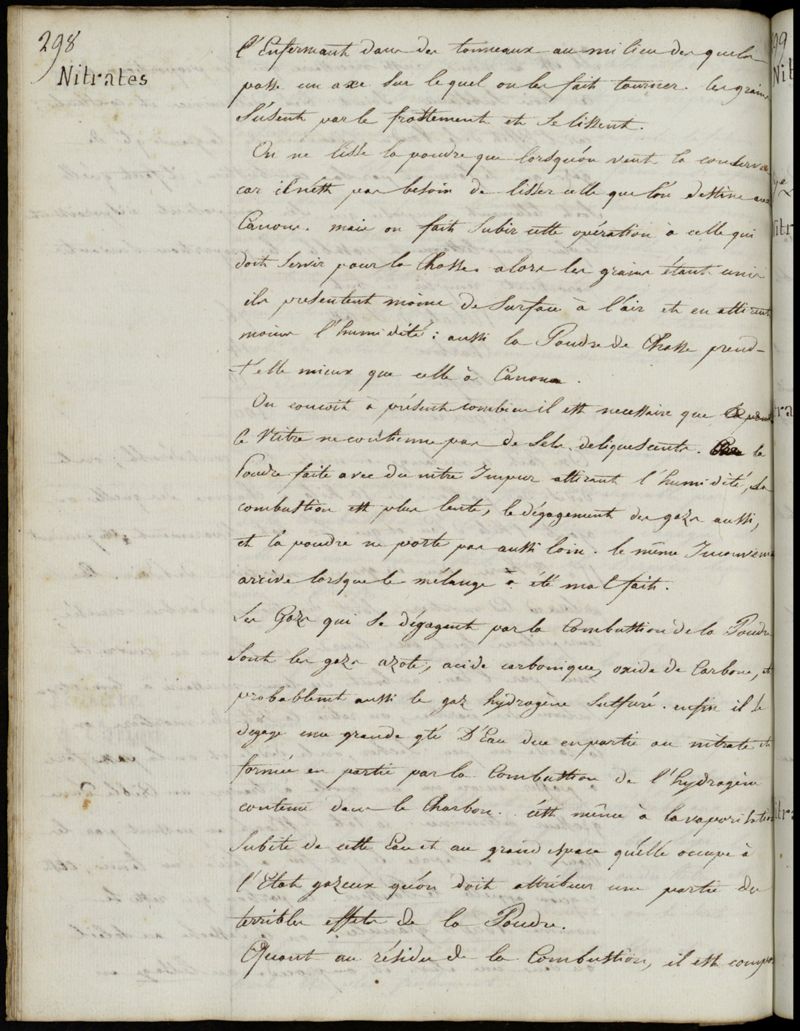 298
Nitrates
l'Enfermant dans des tonneaux au milieu desquels
passe un axe sur lequel on les fait tourner. les grains
s'usent par le frottement et se lissent.
On ne lisse la poudre que lorsqu'on veut la conserver
car il n'est pas besoin de lisser celle que l'on destine aux
Canons. mais on fait subir cette opération à celle qui
doit servir pour la Chasse. alors les grains étant unis
ils presentent moins de surface à l'air et en attirent
moins l'humidité : aussi la Poudre de Chasse prend-
t'elle mieux que celle à Canon.
On conçoit à présent combien il est necessaire que
le Nitre ne contienne pas de Sels deliquescents. la
Poudre faite avec du nitre Impur attirant l'humidité, la
combustion est plus lente, le dégagement des gazs aussi,
et la poudre ne porte pas aussi loin. le même Inconvenient
arrive lorsque le mélange à été mal fait.
Les Gazs qui se dégagent par la Combustion de la Poudre
sont les gazs azote, acide carbonique, oxide de Carbone, et
probablement aussi le gaz hydrogène Sulfuré. enfin il se
degage une grande qté D'Eau due en partie au nitrate et
formée en partie par la Combustion de l'hydrogène
contenu dans le Charbon. c'est même à la vaporisation
Subite de cette Eau et au grand espace qu'elle occupe à
l'Etat gazeux qu'on doit attribuer une partie des
terribles effets de la Poudre.
Quant au résidu de la Combustion, il est composé